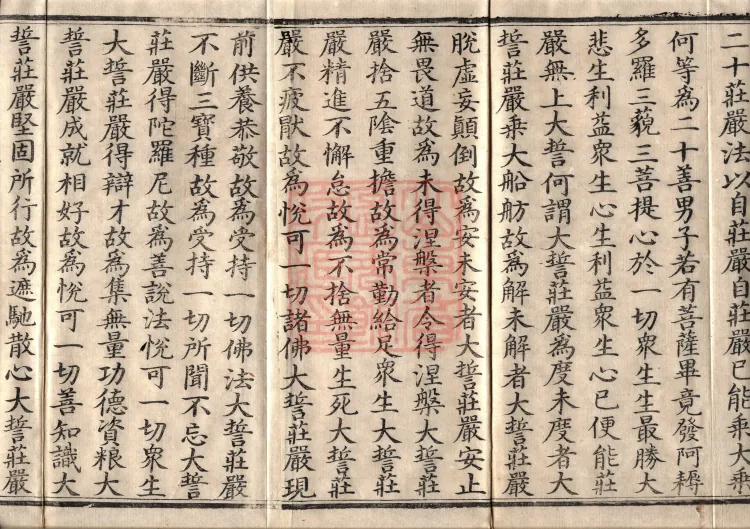 二十莊嚴法以自莊嚴自莊嚴已能乘大乘
何等為二十善男子若有菩薩畢竟發阿耨
多羅三藐三菩提心於一切眾生生最勝大
悲生利益眾生心生利益眾生心已便能莊
嚴無上大誓何謂大誓莊嚴為度未度者大
誓莊嚴乘大船舫故為解未解者大誓莊嚴
脫虛妄顛倒故為安未安者大誓莊嚴安止
無畏道故為未得涅槃者令得涅槃大誓莊
嚴捨五陰重擔故為常勤給足眾生大誓莊
嚴精進不懈怠故為不捨無量生死大誓莊
嚴不疲猒故為悅可一切諸佛大誓莊嚴現
前供養恭敬故為受持一切佛法大誓莊嚴
不斷三寶種故為受持一切所聞不忘大誓
莊嚴得陀羅尼故為善說法悅可一切眾生
大誓莊嚴得辯才故為集無量功德資粮大
誓莊嚴成就相好故為悅可一切善知識大
誓莊嚴堅固所行故為遮馳散心大誓莊嚴